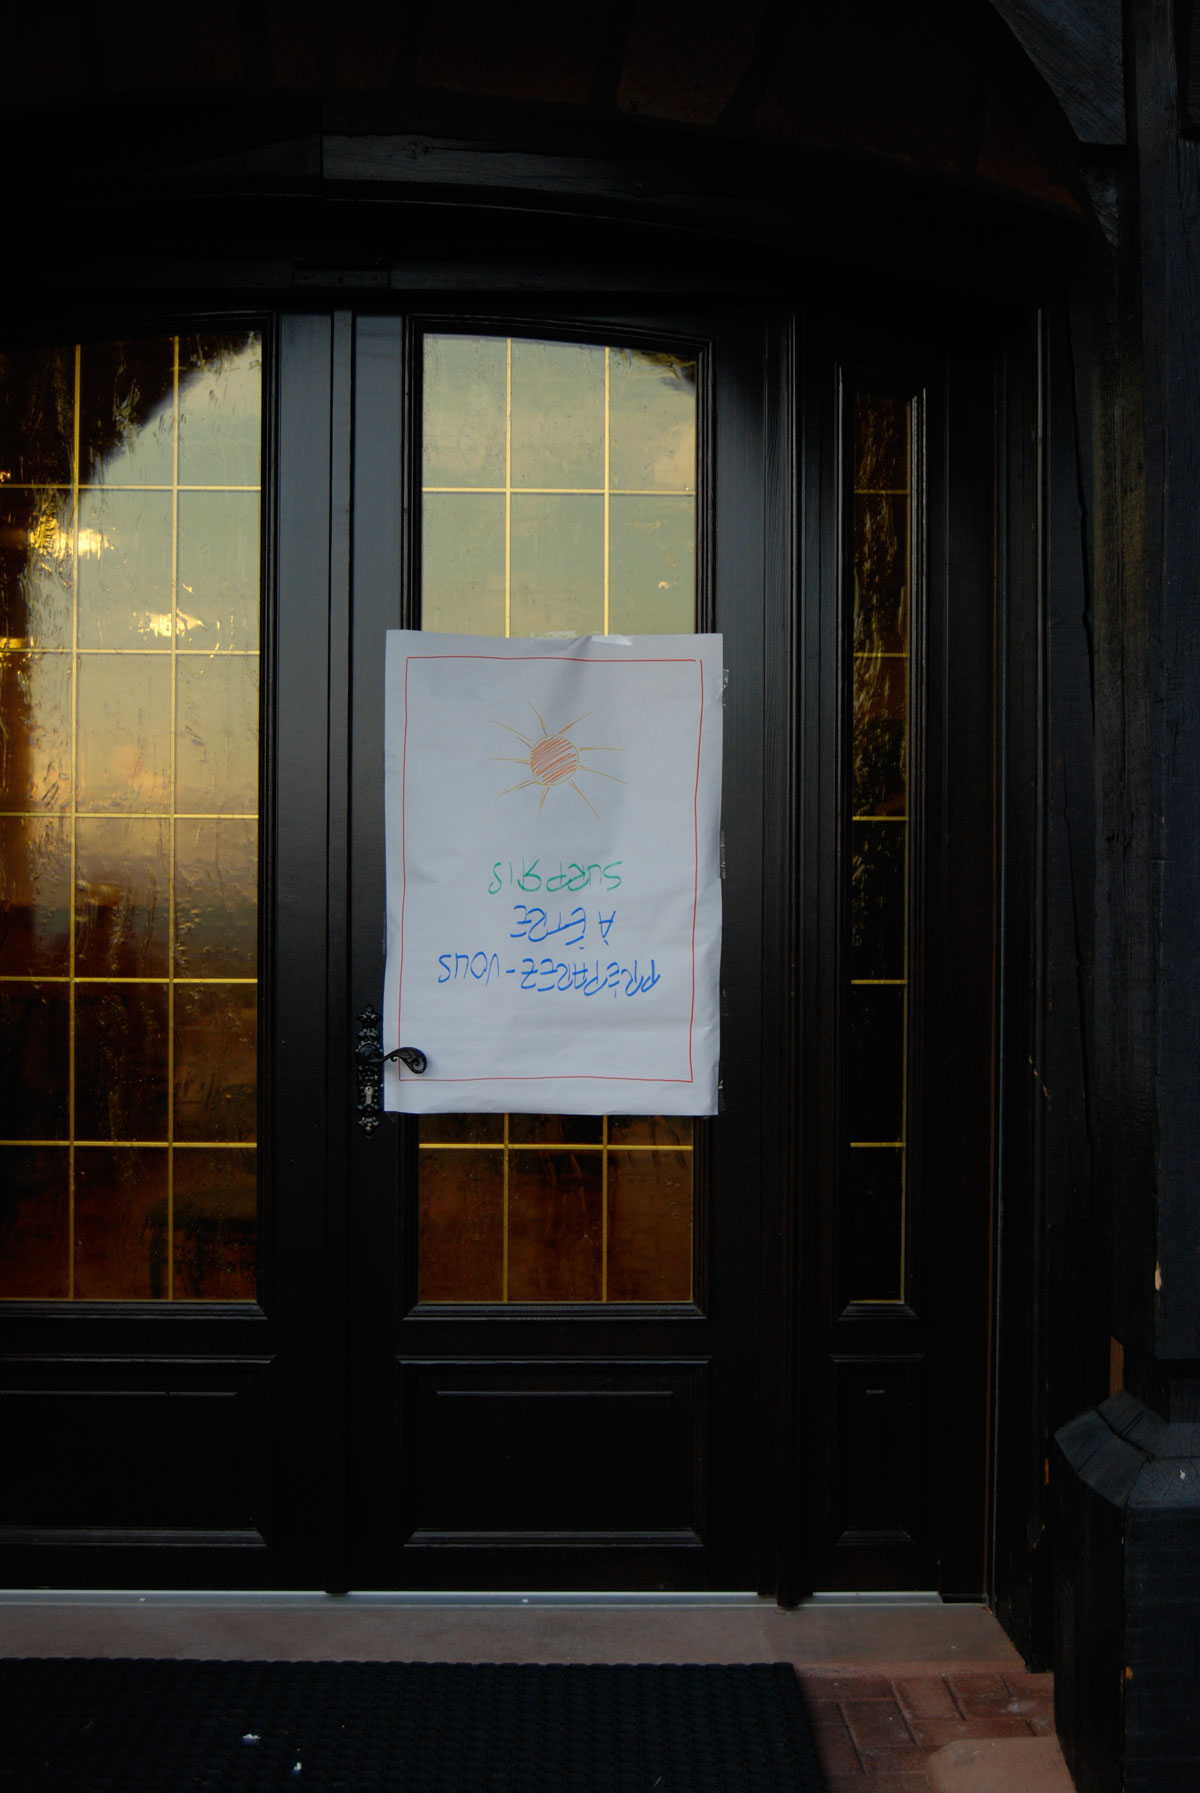 PRÉPAREZ-VOUS
À ÊTRE
SURPRIS